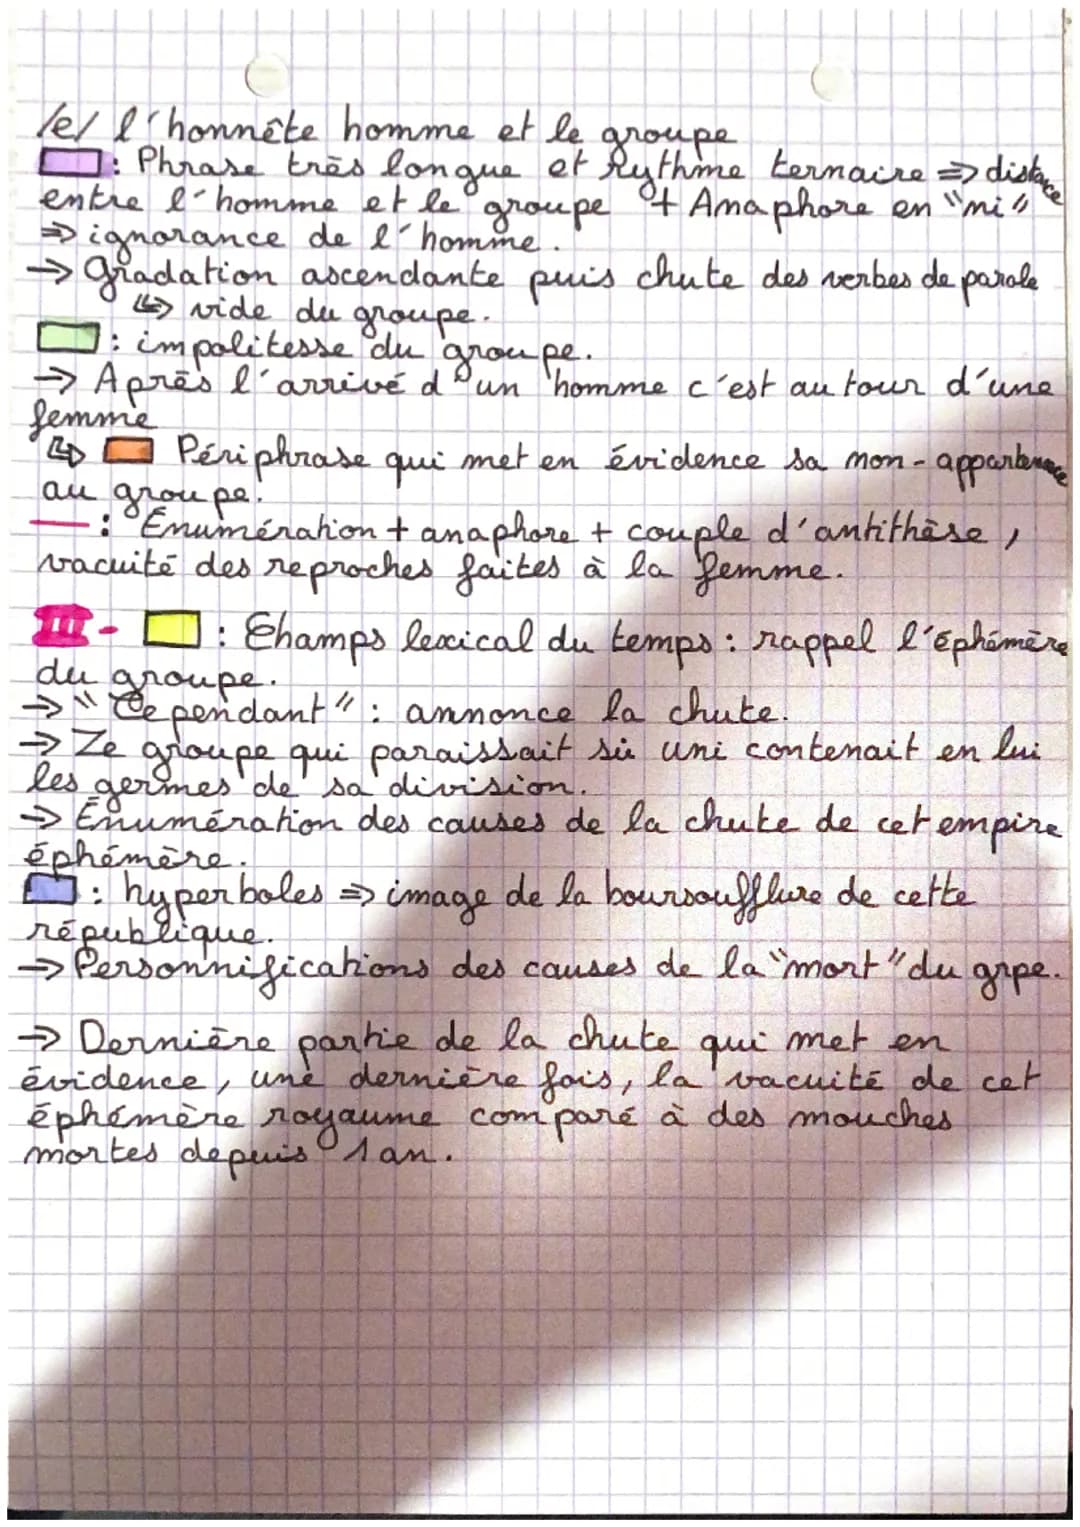 /e/ l'honnête homme et le groupe
: Phrase très longue et Rythme ternaire => distance
entre l'homme et le groupe + Anaphore en "ni"
=> ignorance de l'homme.
-> Gradation ascendante puis chute des verbes de parole
↳ vide du groupe.
: impolitesse du groupe.
-> Après l'arrivé d'un homme c'est au tour d'une
femme
↳ Périphrase qui met en évidence sa non-appartenance
au groupe.
: Énumération + anaphore + couple d'antithèse,
vacuité des reproches faites à la femme.
III - : Champs lexical du temps : rappel l'éphémère
du groupe.
-> "Cependant" : annonce la chute.
-> Le groupe qui paraissait si uni contenait en lui
les germes de sa division.
-> Énumération des causes de la chute de cet empire
éphémère.
: hyperboles => image de la boursoufflure de cette
république.
-> Personnifications des causes de la "mort" du grpe.
-> Dernière partie de la chute qui met en
évidence, une dernière fois, la vacuité de cet
éphémère royaume comparé à des mouches
mortes depuis 1 an.